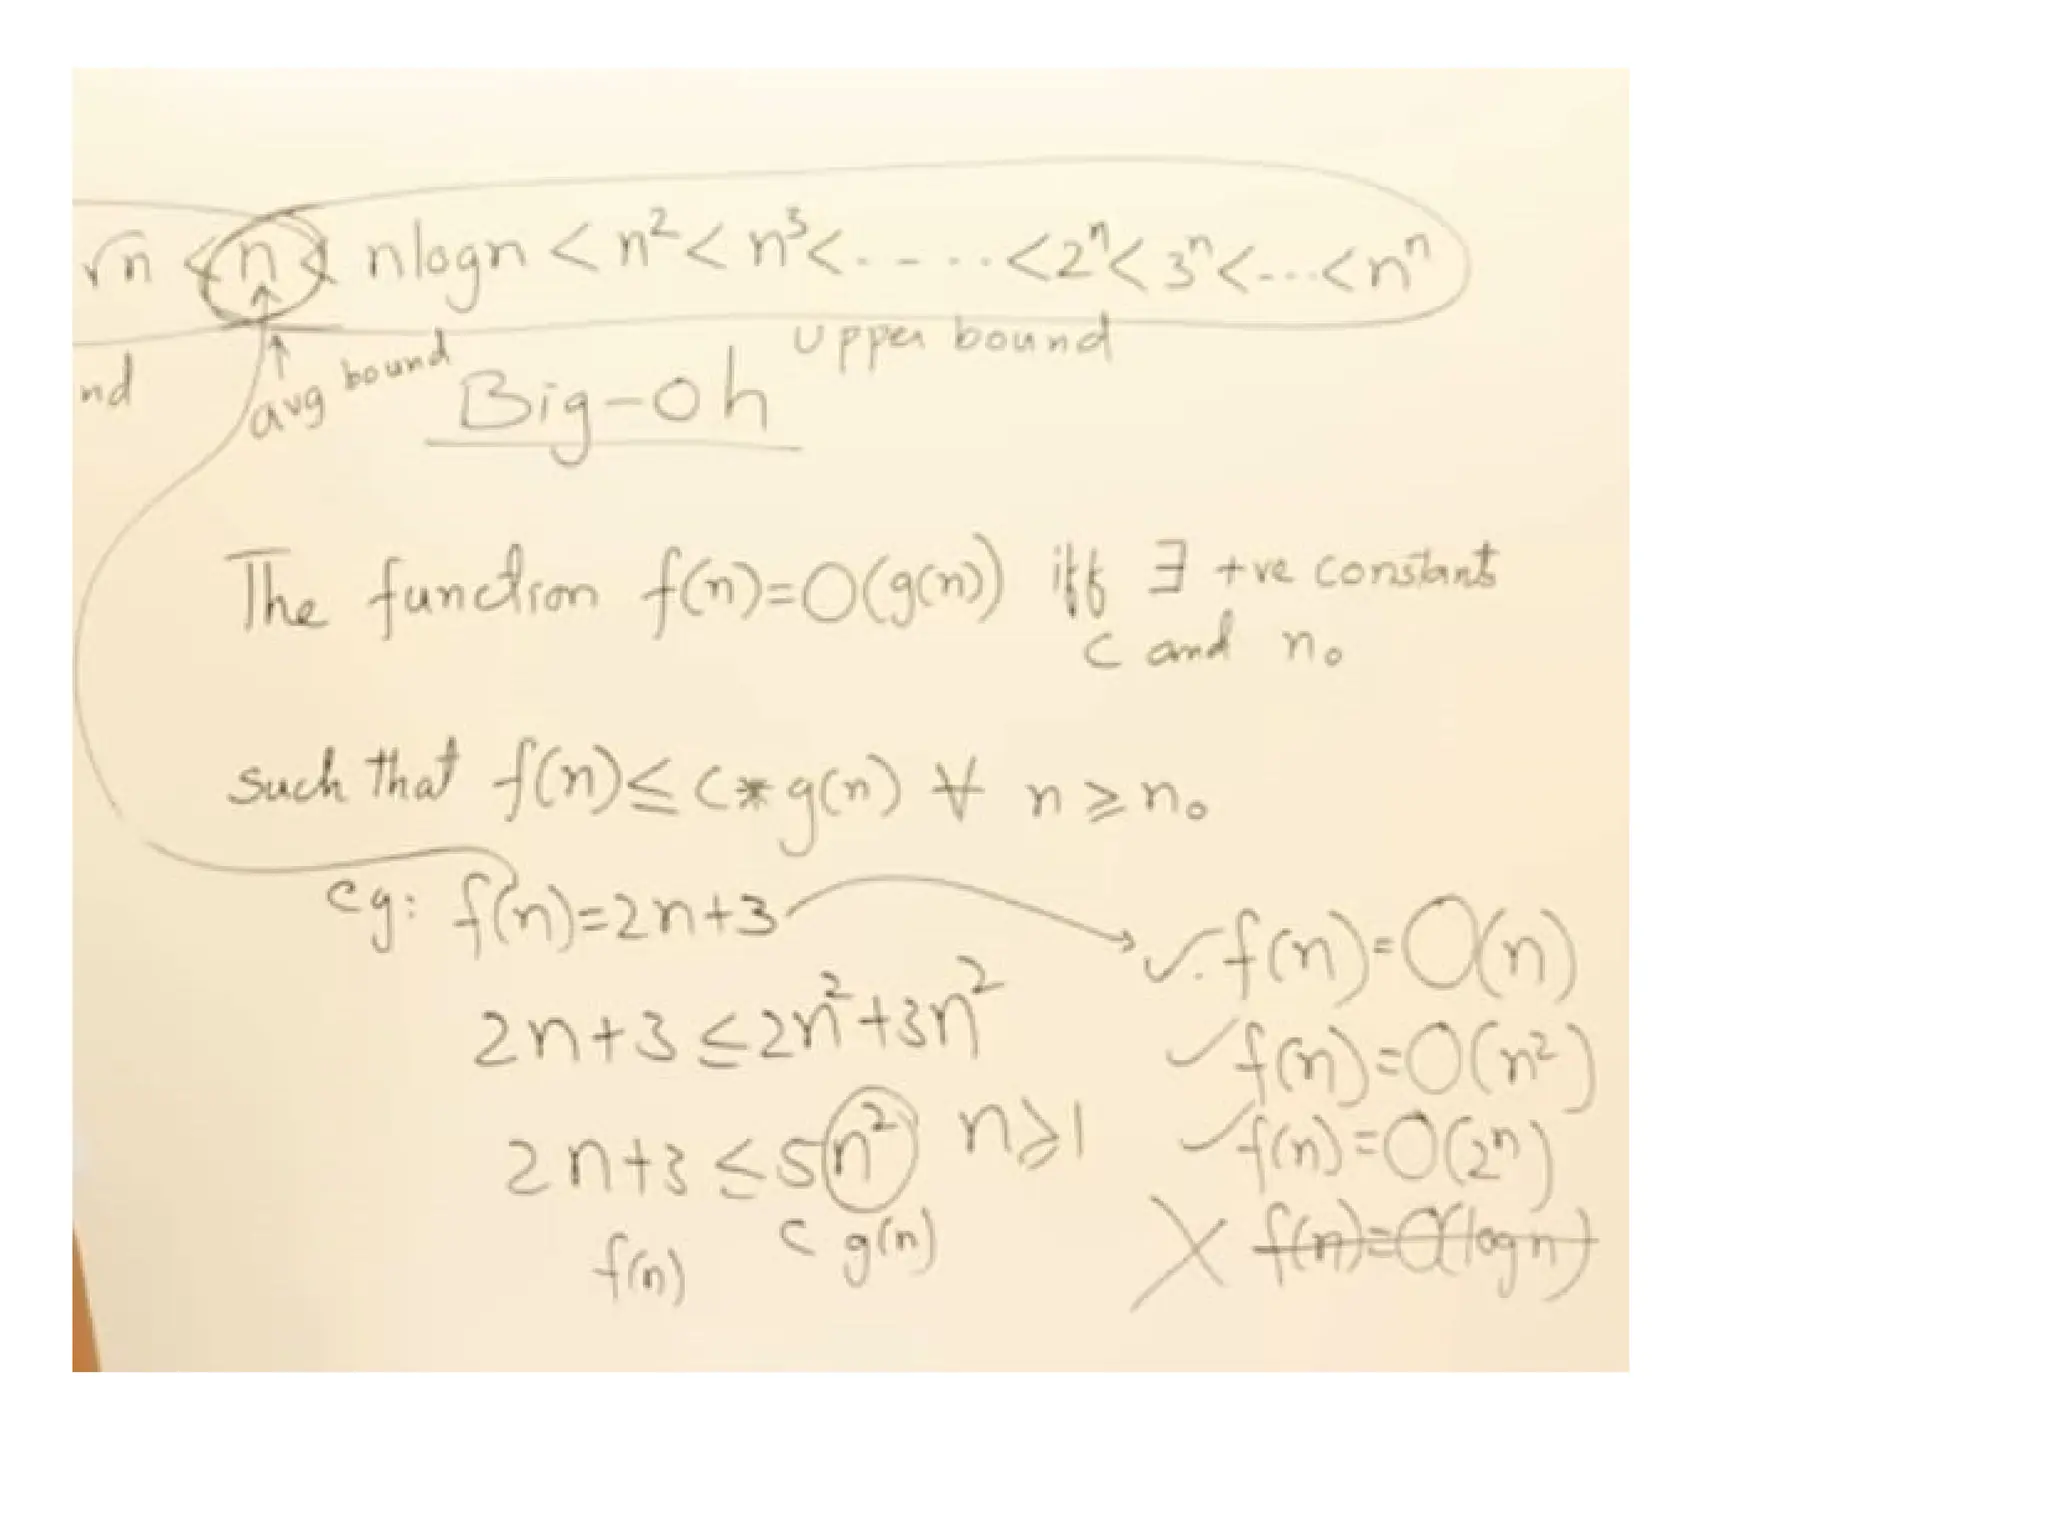 √n < n < nlogn < n² < n³ < - - - .. < 2ⁿ < 3ⁿ < - - .. < nⁿ
nd
avg bound
Upper bound
Big-oh
The function f(n)=O(g(n)) iff ∃ +ve constants
c and n₀
such that f(n) ≤ c*g(n) ∀ n ≥ n₀
eg: f(n)=2n+3
✓. f(n)=O(n)
2n+3 ≤ 2n²+3n²
✓ f(n)=O(n²)
2n+3 ≤ 5n² n≥1
✓ f(n)=O(2ⁿ)
f(n) c g(n)
X f(n)=O(logn)